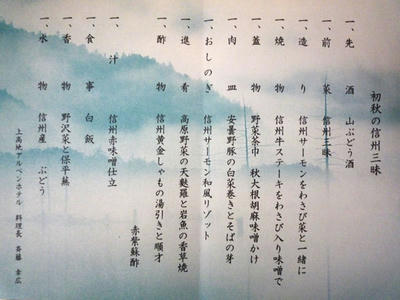 初秋の信州三昧
一、先 酒 山ぶどう酒
一、前 菜 信州三昧
一、造 り 信州サーモンをわさび菜と一緒に
一、焼 物 信州牛ステーキをわさび入り味噌で
一、蓋 物 野菜茶巾 秋大根胡麻味噌かけ
一、肉 皿 安曇野豚の白菜巻きとそばの芽
一、おしのぎ 信州サーモン和風リゾット
一、進 肴 高原野菜の天麩羅と岩魚の香草焼
一、酢 物 信州黄金しゃもの湯引きと順才
赤紫蘇酢
一、汁 信州赤味噌仕立
一、食 事 白飯
一、香 物 野沢菜と保平蕪
一、水 物 信州産 ぶどう
上高地アルペンホテル 料理長 斉藤 幸広